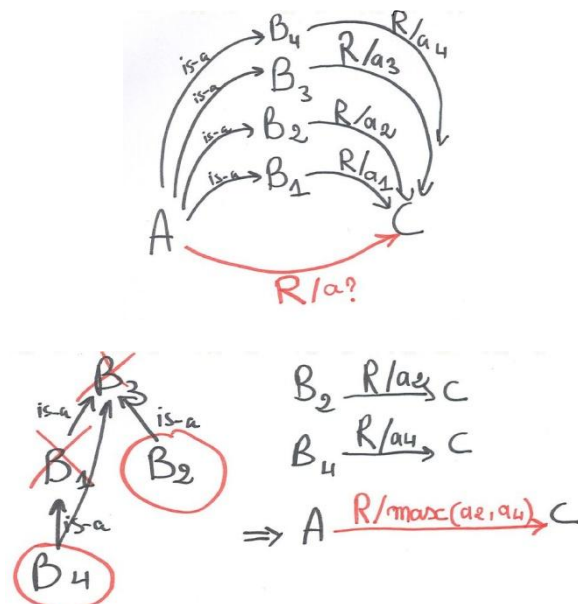 B4 R/a4
is-a
B3 R/a3
is-a
B2 R/a2
is-a
B1 R/a1
is-a
A C
R/a?
B3
is-a is-a
B1 B2
is-a
B4
B2 R/a2 C
B4 R/a4 C
⇒ A R/max(a2,a4) C